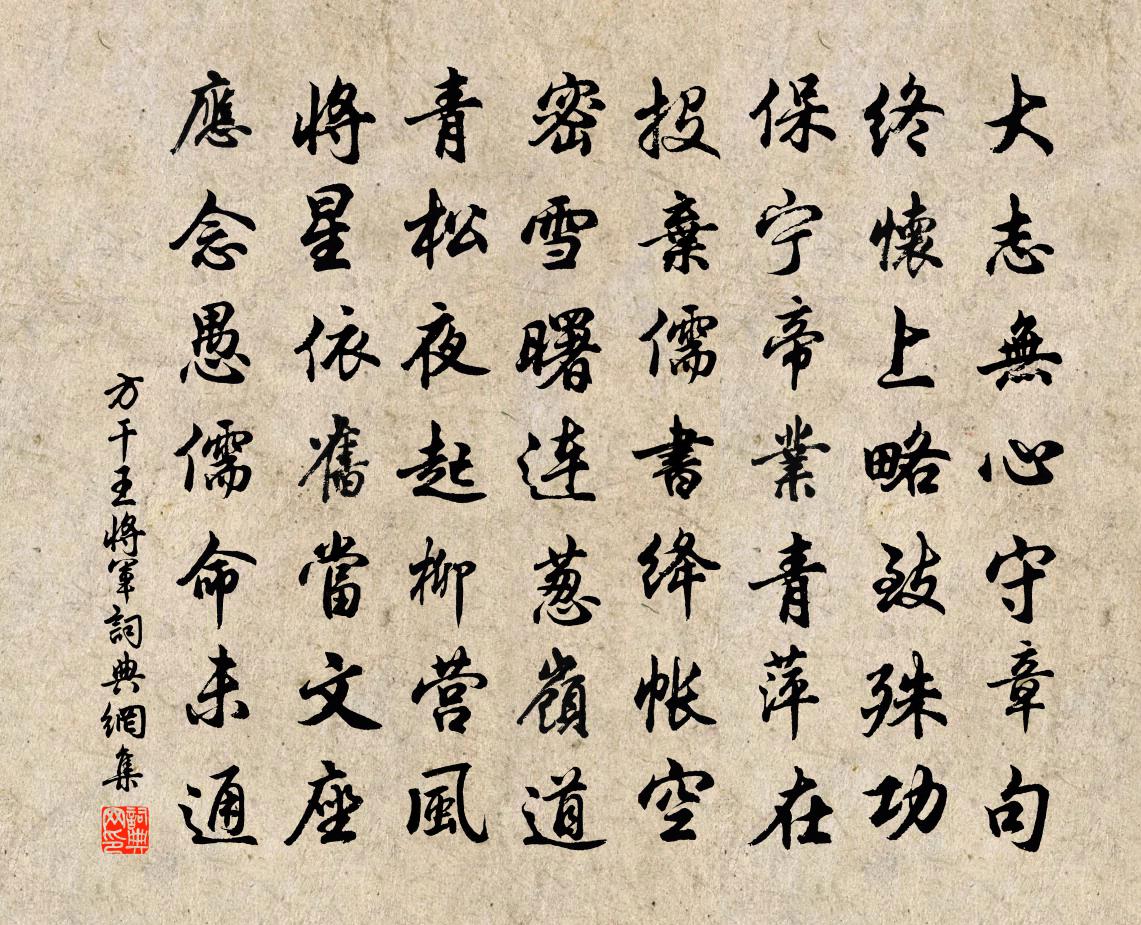 大志無心守章句
终懷上略致殊功
保宁帝業青萍在
投棄儒書绛帐空
密雪曙连葱嶺道
青松夜起柳营風
将星依舊當文座
應念愚儒命未通
方干王将軍詞典網集
詞典网印